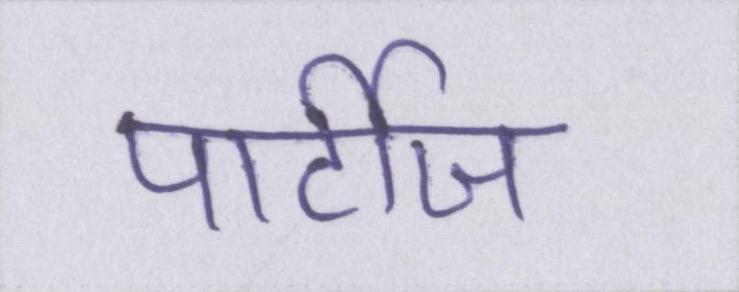 पार्टीज